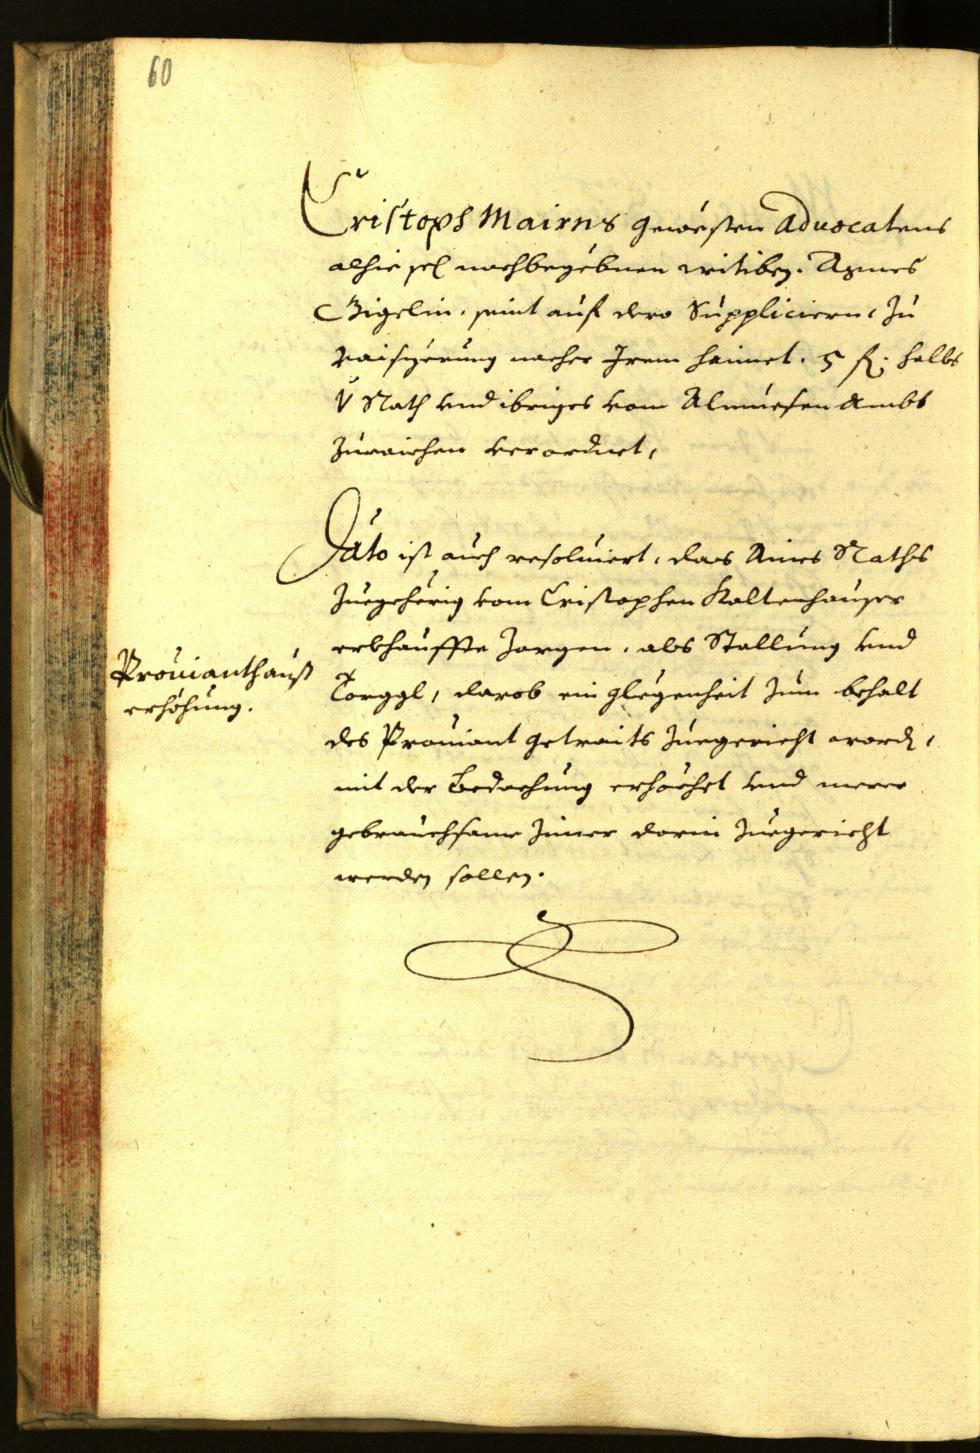 60
Cristoph Mairns gewesten Advocatens
alhie sel nachbegebnen witiben. Agnes
Gigelin, seint auf dero Suppliciern, zu
raiszerung nacher Irem haimet. 5 fl: halbs
V Rath vnd ibriges vom Almuesen Ambt
zuraichen verordnet,
Dato ist auch resoluiert, das Aines Raths
zuegehörig vom Cristophen Kaltenhauser
erkhauffte Zargen, als Stallung vnd
Torggl, darob ein glegenheit zum behalt
des Prouiant getraits zuegericht word,
mit der Bedachung erhöchet vnd merer
gebrauchsame Zimer darin zuegericht
werden sollen.
Prouianthauß
erhöhung.